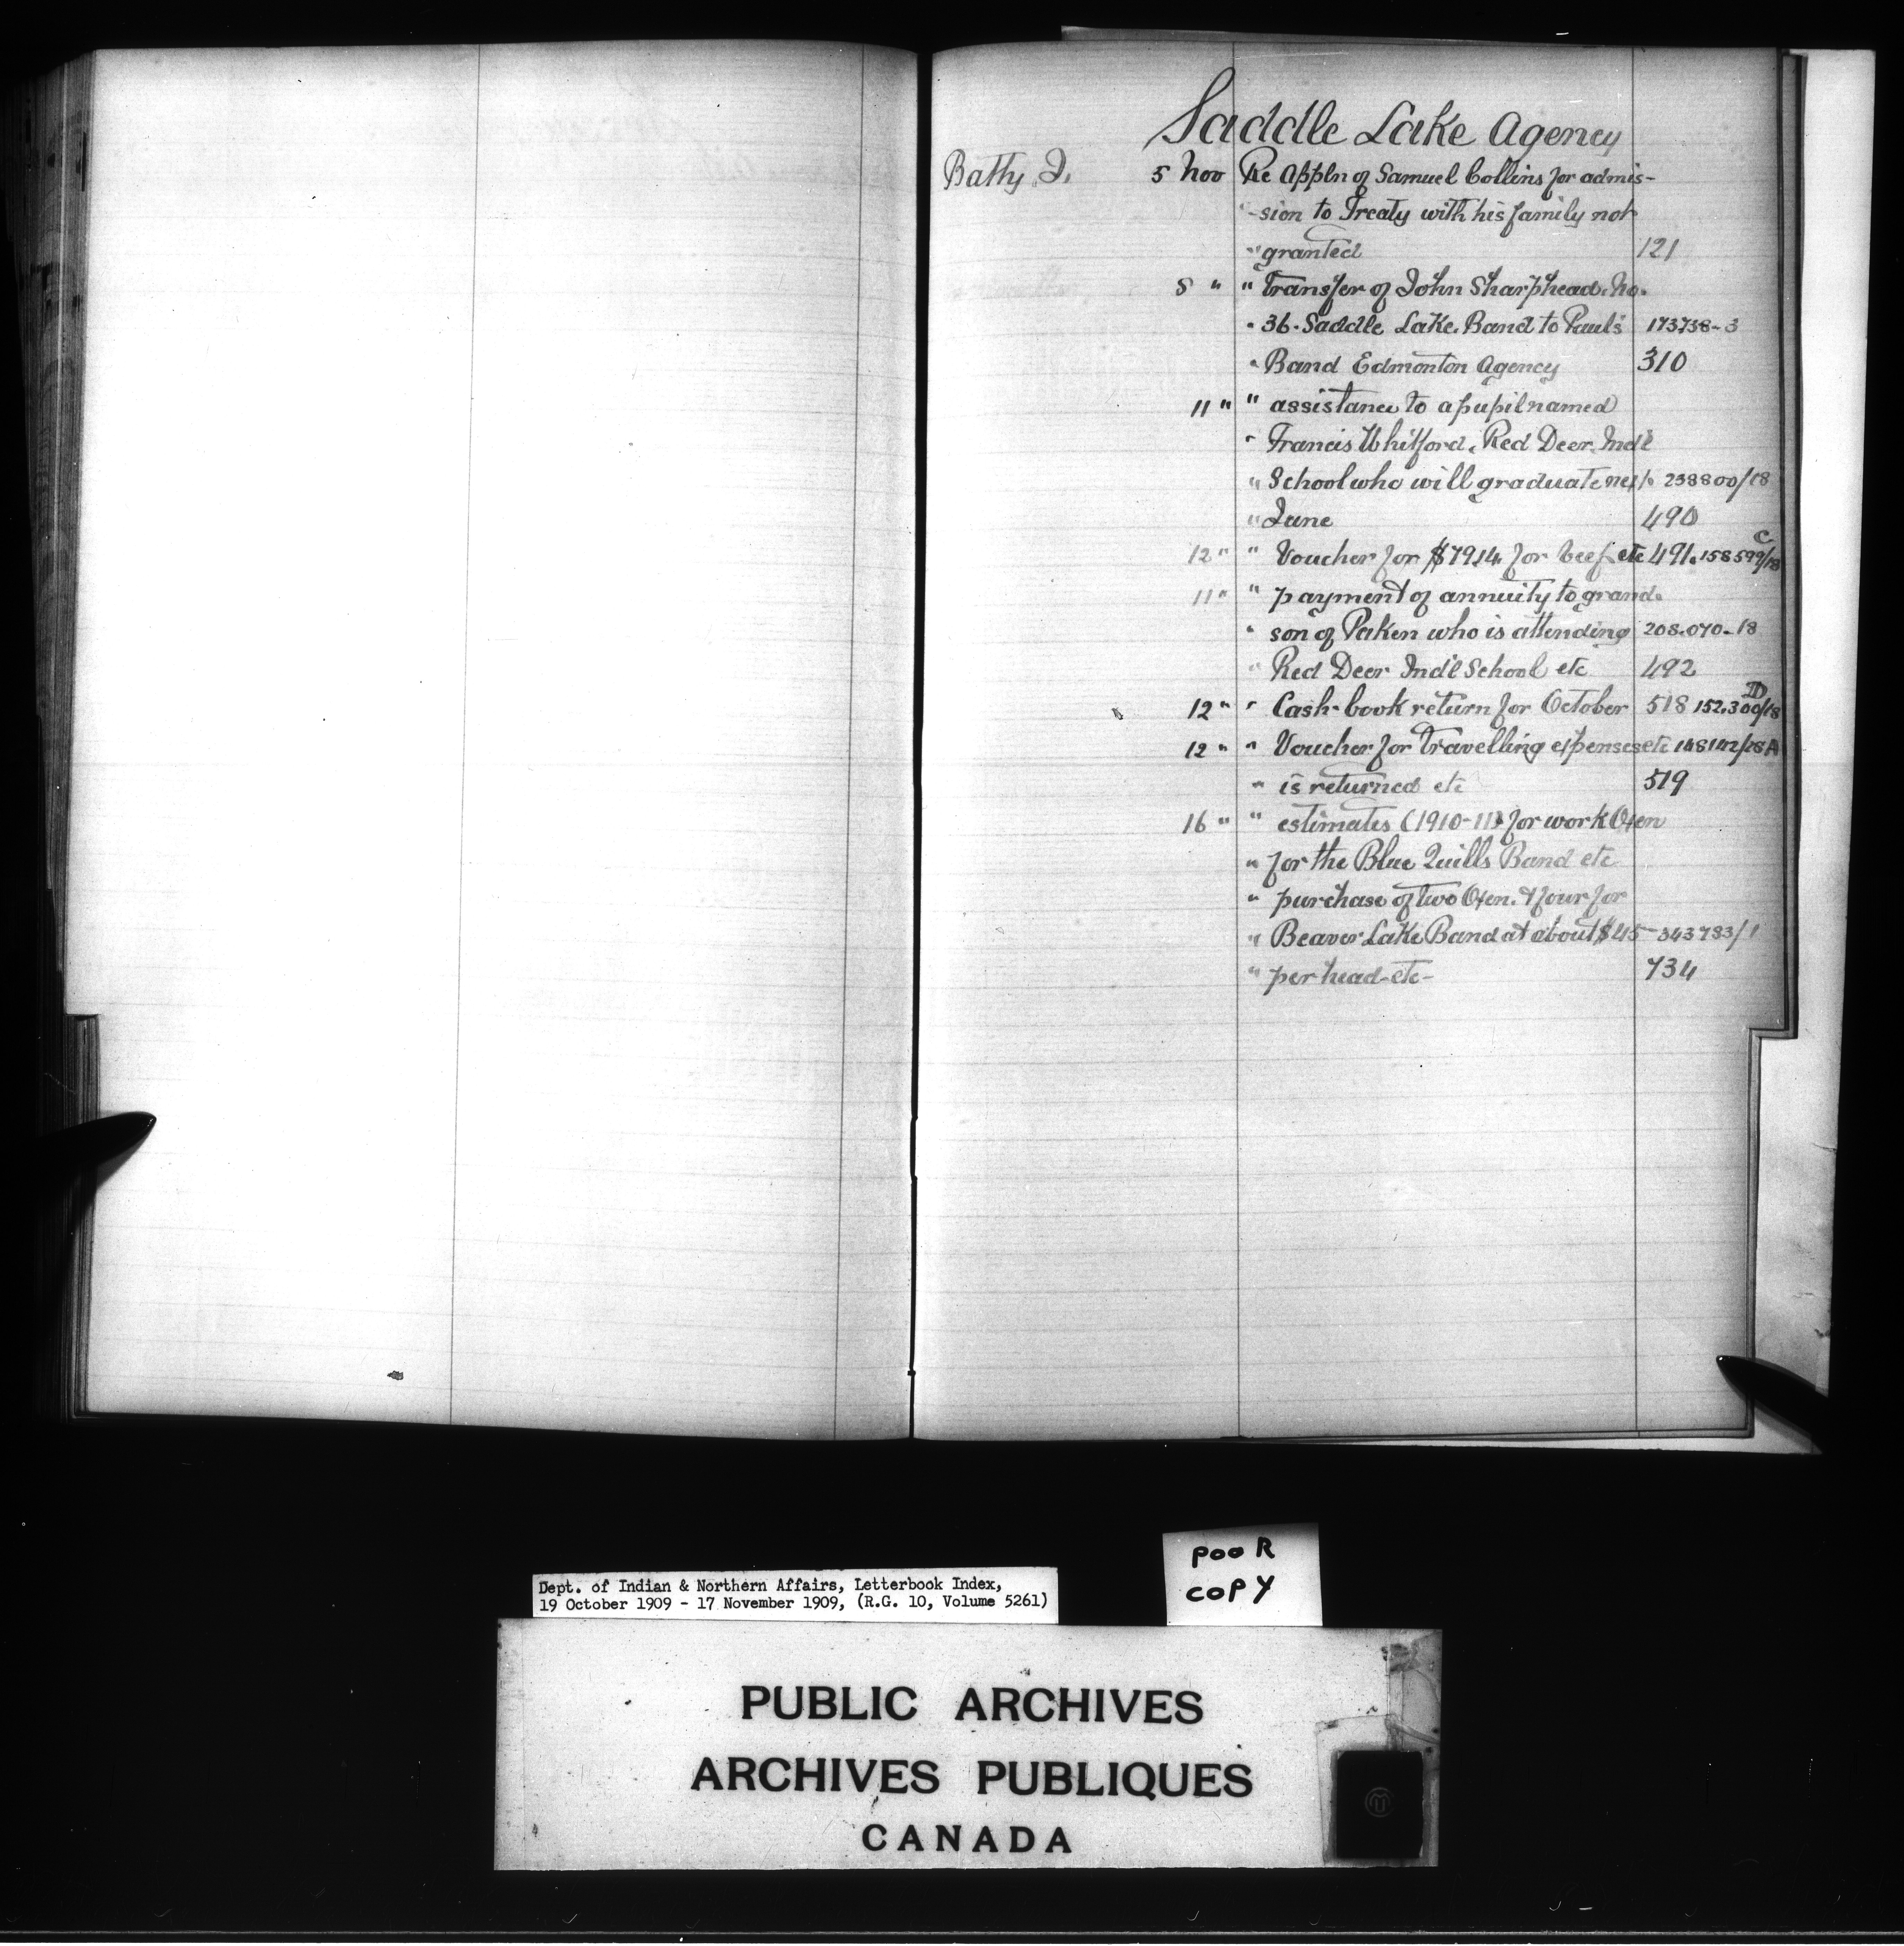 Saddle Lake Agency
Batty J. 5 Nov Re Appln of Samuel Collins for admis-
" -sion to Treaty with his family not
" granted 121
8 " " Transfer of John Sharphead. No.
" 36. Saddle Lake Band to Paul's 173738-3
" Band Edmonton Agency 310
11 " " assistance to a pupil named
" Francis Whitford, Red Deer Ind'l
" School who will graduate next 238800/18
" June 490
12 " " Voucher for $79.14 for beef etc 491. 158599/18 C
11 " " payment of annuity to grand-
" son of Paken who is attending 208.070-18
" Red Deer Ind'l School etc 492
12 " " Cash-book return for October 518 152.300/18 D
12 " " Voucher for travelling expenses etc 148142/28 A
" is returned etc 519
16 " " estimates (1910-11) for work Oxen
" for the Blue Quills Band etc
" purchase of two Oxen. & four for
" Beaver Lake Band at about $45- 343783/1
" per head-etc- 734
Dept. of Indian & Northern Affairs, Letterbook Index,
19 October 1909 - 17 November 1909, (R.G. 10, Volume 5261)
POOR
COPY
PUBLIC ARCHIVES
ARCHIVES PUBLIQUES
CANADA